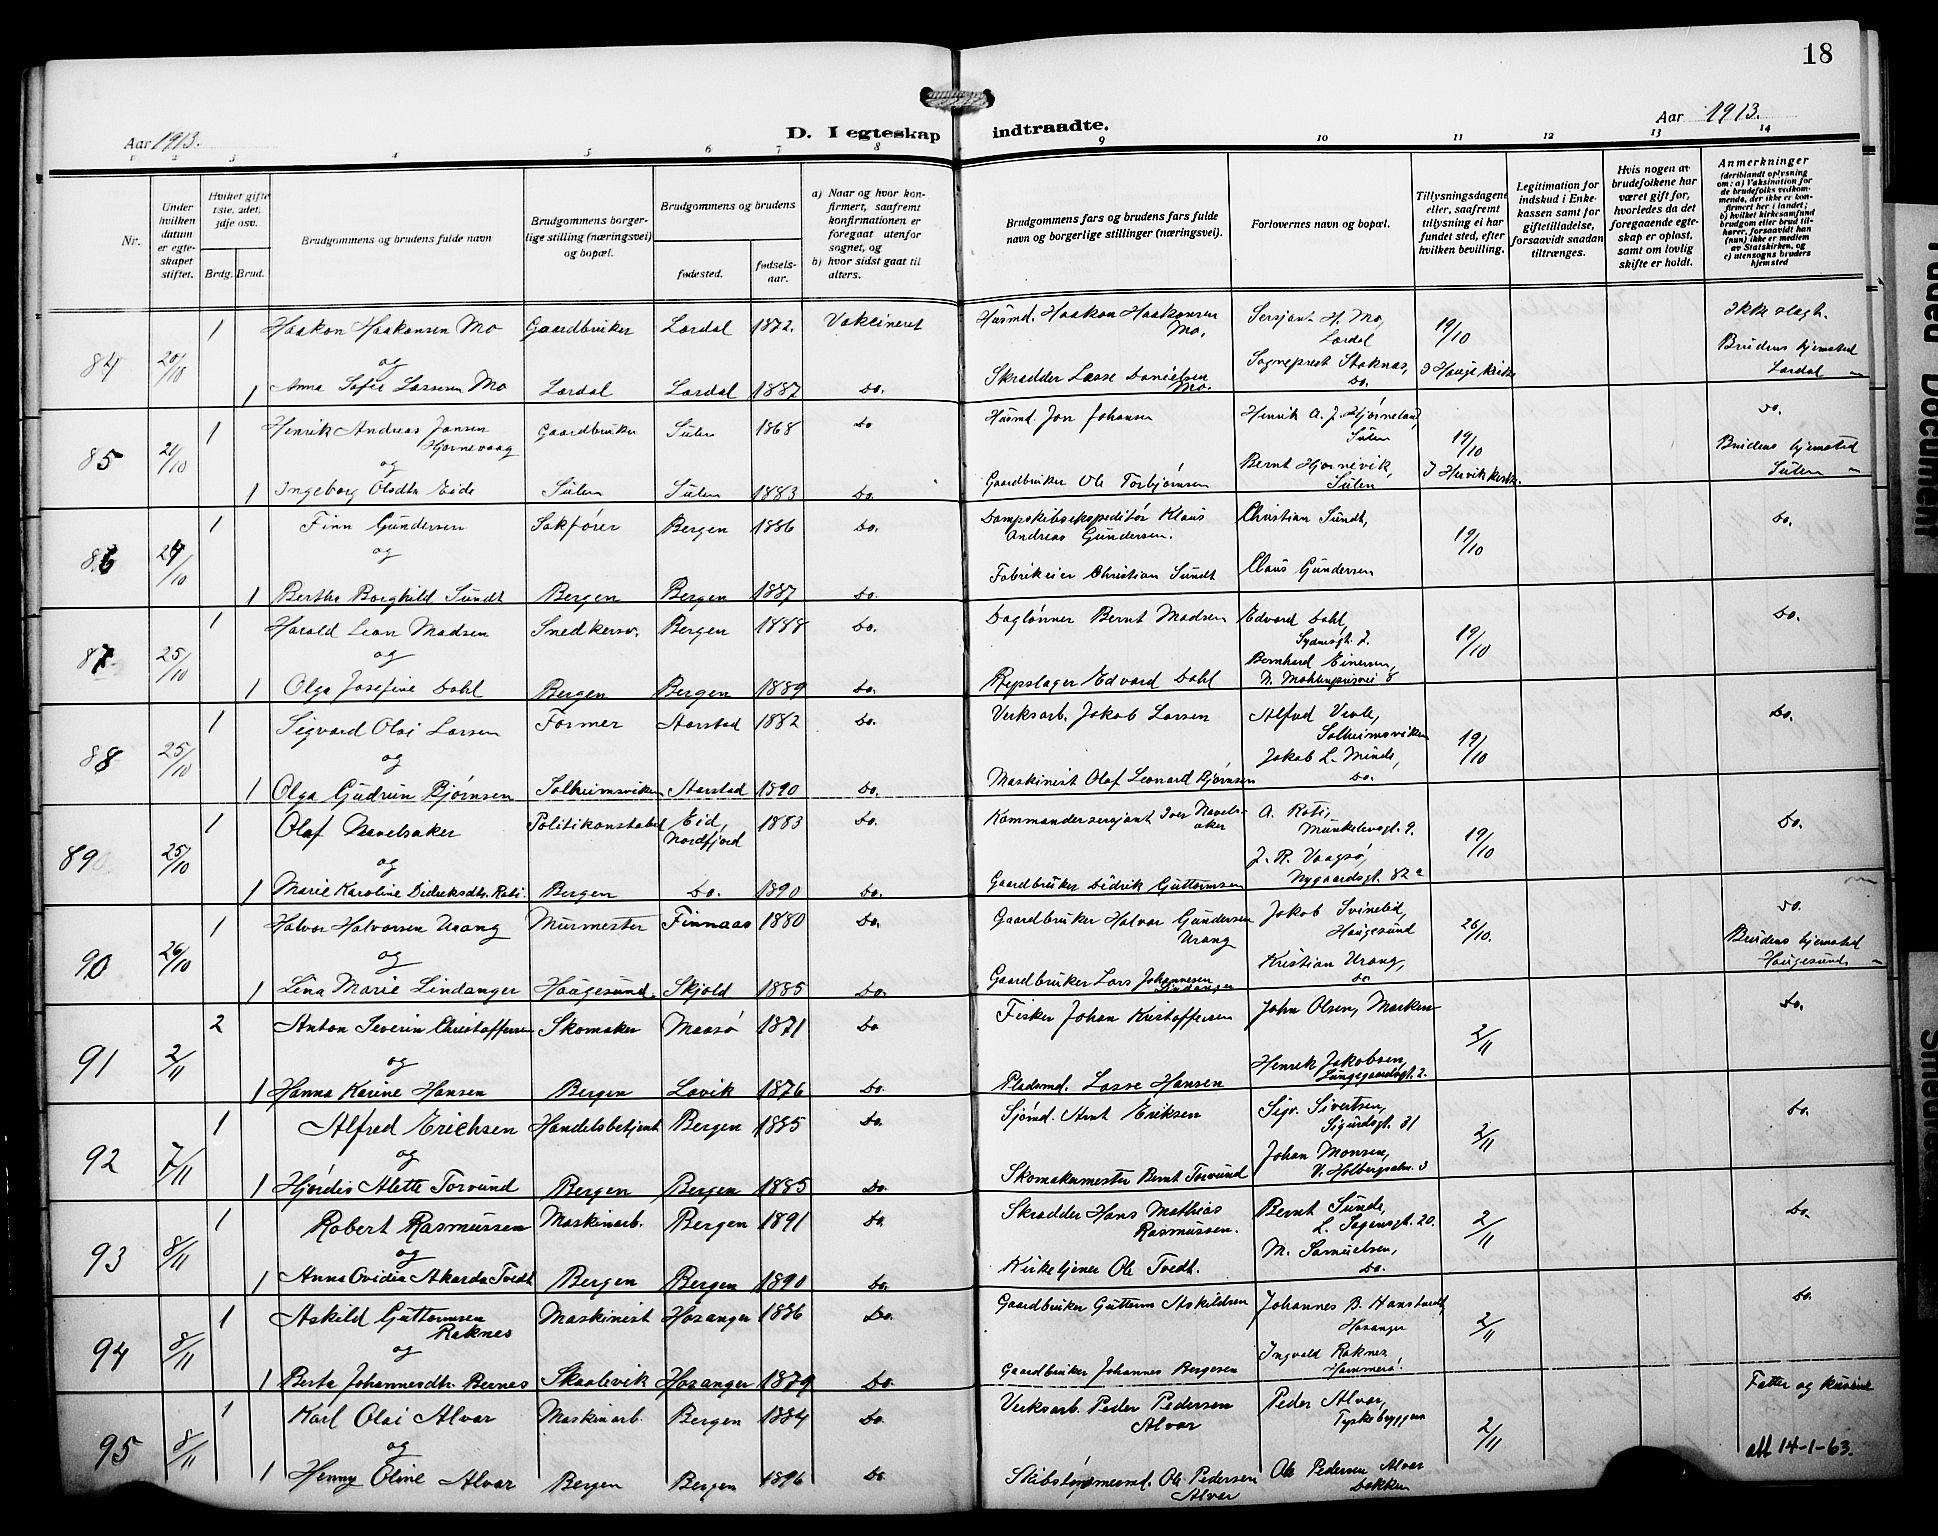 18
Aar 1913.
D. I egteskap indtraadte.
Aar 1913.
1 2 3 4 5 6 7 8 9 10 11 12 13 14
Nr.
Under hvilken datum er egteskapet stiftet.
Hvilket gifte 1ste, 2det, 3dje osv.
Brdg. Brud.
Brudgommens og brudens fulde navn
Brudgommens borgerlige stilling (næringsvei) og bopæl.
Brudgommens og brudens
fødested.
fødselsaar.
a) Naar og hvor konfirmert, saafremt konfirmationen er foregaat utenfor sognet, og
b) hvor sidst gaat til alters.
Brudgommens fars og brudens fars fulde navn og borgerlige stillinger (næringsvei).
Forlovernes navn og bopæl.
Tillysningsdagene eller, saafremt tillysning ei har fundet sted, efter hvilken bevilling.
Legitimation for indskud i Enkekassen samt for giftetilladelse, forsaavidt saadan tiltrænges.
Hvis nogen av brudefolkene har været gift før, hvorledes da det foregaaende egteskap er opløst, samt om lovlig skifte er holdt.
Anmerkninger
(deriblandt oplysning om: a) Vaksination for de brudefolks vedkommende, der ikke er konfirmert her i landet; b) hvilket kirkesamfund brudgom eller brud tilhører, forsaavidt han (hun) ikke er medlem av Statskirken, og c) utensogns bruders hjemsted
84 20/10 1 Haakon Haakonsen Mo Gaardbruker Lærdal 1872. Vakcineret Husmd. Haakon Haakonsen Mo. Sersjant H. Mo, Lærdal 19/10 Ikke slegt.
og
1 Anna Sofie Lassesen Mo Lærdal Lærdal 1887 Do. Skrædder Lasse Danielsen Mo. Sogneprest Stoknæs, Do. I Hauge kirke Brudens hjemsted Lærdal
85 21/10 1 Henrik Andreas Jonsen Hjørnevaag Gaardbruker Sulen 1868 Do Husmd. Jon Johansen Henrik A. J. Hjørneland, Sulen 19/10 Do.
og
1 Ingeborg Olsdtr Eide Sulen Sulen 1883 Do. Gaardbruker Ole Torbjørnsen Bernt Hjørnevik, Sulen Brudens hjemsted Sulen
86 24/10 1 Finn Gundersen Sakfører Bergen 1886 Do. Dampskibsekspeditør Klaus Andreas Gundersen. Christian Sundt, 19/10 Do.
og
1 Bertha Borghild Sundt Bergen Bergen 1887 Do. Fabrikeier Christian Sundt Claus Gundersen
87 25/10 1 Harald Leon Madsen Snedkersv. Bergen 1888 Do. Daglønner Bernt Madsen Edvard Dahl, Sydnesgt. 2. 19/10 Do.
og
1 Olga Josefine Dahl Bergen Bergen 1889 Do. Repslager Edvard Dahl Bernhard Einersen, N. Møhlenprisvei 8
88 25/10 1 Sigvard Olai Larsen Former Aarstad 1882 Do. Verksarb. Jakob Larsen Alfred Veole, Solheimsviken 19/10 Do.
og
1 Olga Gudrun Bjørnsen Solheimsviken Aarstad 1890 Do. Maskinist Olaf Leonard Bjørnsen Jakob L. Minde, Do.
89 25/10 1 Olaf Navelsaker Politikonstabel Eid, Nordfjord 1883 Do. Kommandersersjant Iver Navelsaker A. Roti, Munkelivsgt. 9. 19/10 Do.
og
1 Marie Karoline Didriksdtr. Roti Bergen Do. 1890 Do. Gaardbruker Didrik Guttormsen J. R. Vaagsø, Nygaardsgt. 82a
90 26/10 1 Halvor Halvorsen Urang Murmester Finnaas 1880 Do. Gaardbruker Halvor Gundersen Urang Jakob Svinelid, Haugesund 26/10. Do.
og
1 Lina Marie Lindanger Haugesund. Skjold 1885 Do. Gaardbruker Lars Johannesen Lindanger Kristian Urang, Do Brudens hjemsted Haugesund
91 2/11 2 Anton Severin Christoffersen Skomaker Maasø 1871 Do Fisker Johan Kristoffersen John Olsen, Marken 2/11 Do.
og
1 Hanna Karine Hansen Bergen Lavik 1876 Do. Pladsmd. Lasse Hansen Henrik Jakobsen, Lungegaardsgt. 2.
92 7/11 1 Alfred Erichsen Handelsbetjent Bergen 1885 Do. Sjømd. Arnt Eriksen Sigv. Sivertsen, Sigurdsgt. 31 2/11 Do.
og
1 Hjørdis Alette Torvund Bergen Bergen 1885 Do. Skomakermester Bernt Torvund Johan Monsen, V. Holbergsalm. 3
93 8/11 1 Robert Rasmussen Maskinarb. Bergen 1891 Do. Skrædder Hans Mathias Rasmussen. Bernt Sunde, L. Sagensgt. 20. 2/11 Do.
og
1 Anna Ovidia Akarda Tvedt Bergen Bergen 1890 Do. Kirketjener Ole Tvedt. M. Samuelsen, Do.
94 8/11 1 Askild Guttormsen Raknes Maskinist Hosanger 1886 Do. Gaardbruker Guttorm Askildsen Johannes B. Hanstvedt, Hosanger 2/11 Do.
og
1 Berta Johannesdtr. Bernes Skaalevik Hosanger 1879 Do. Gaardbruker Johannes Bergesen Ingvald Raknes, Hammerø.
95 8/11 1 Karl Olai Alvar Maskinarb. Bergen 1884 Do. Verksarb. Peder Pedersen Alvar Peder Alvar, Tyskebryggen 2/11 Fætter og kusine
og
1 Henny Oline Alvar Bergen Bergen 1896 Do. Skibstømmermd. Ole Pedersen Alvar Ole Pedersen Alvar Dokken att 14-1-63.